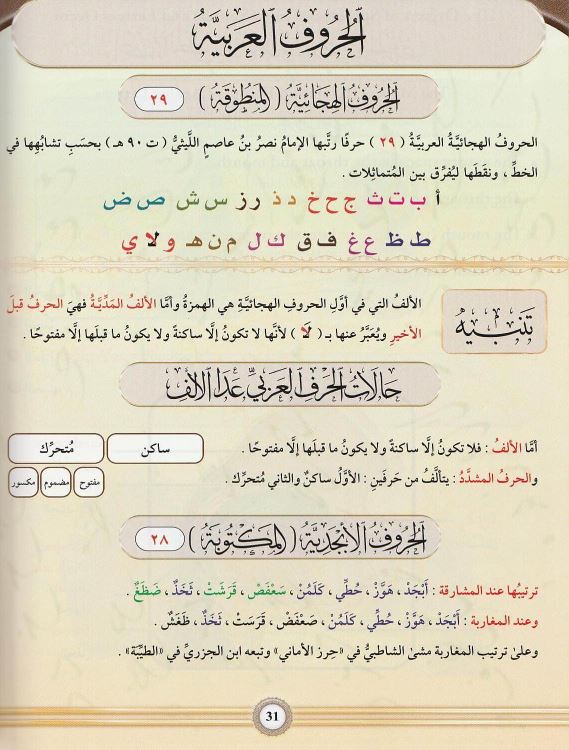 الحُرُوفُ العَرَبِيَّةُ
الحُرُوفُ الهِجَائِيَّةُ ( المَنْطُوقَةُ ) ٢٩
الحروفُ الهجائيَّةُ العربيَّةُ ( ٢٩ ) حرفًا رتَّبها الإمامُ نصرُ بنُ عاصمٍ اللَّيثيُّ ( ت ٩٠ هـ ) بحسَبِ تشابُهِها في
الخطِّ ، ونقَطَها ليُفرِّق بين المتماثِلات .
أ ب ت ث ج ح خ د ذ ر ز س ش ص ض
ط ظ ع غ ف ق ك ل م ن هـ و لا ي
تَنْبِيهٌ
الألفُ التي في أوَّلِ الحروفِ الهجائيَّةِ هي الهمزةُ وأمَّا الألفُ المَدِّيَّةُ فهيَ الحرفُ قبلَ
الأخيرِ ويُعَبَّرُ عنها بـ ( لَا ) لأنَّها لا تكونُ إلَّا ساكنةً ولا يكونُ ما قبلَها إلَّا مفتوحًا .
حَالَاتُ الحَرْفِ العَرَبِيِّ عَدَا الأَلِفِ
أمَّا الألفُ : فلا تكونُ إلَّا ساكنةً ولا يكونُ ما قبلَها إلَّا مفتوحًا .
ساكن
مُتحرِّك
والحرفُ المشدَّدُ : يتألَّفُ من حَرفَينِ : الأوَّلُ ساكنٌ والثاني مُتحرِّك .
مفتوح
مضموم
مكسور
الحُرُوفُ الأَبْجَدِيَّةُ ( المَكْتُوبَةُ ) ٢٨
ترتيبُها عند المشارقة : أَبْجَدْ ، هَوَّزْ ، حُطِّي ، كَلَمُنْ ، سَعْفَصْ ، قَرَشَتْ ، ثَخَذْ ، ضَظَغٌ .
وعند المغاربة : أَبْجَدْ ، هَوَّزْ ، حُطِّي ، كَلَمُنْ ، صَعْفَضْ ، قَرَسَتْ ، ثَخَذْ ، ظَغَشْ .
وعلىٰ ترتيبِ المغاربة مشىٰ الشاطبيُّ في «حِرز الأماني» وتبعه ابن الجزريِّ في «الطيِّبَة» .
31